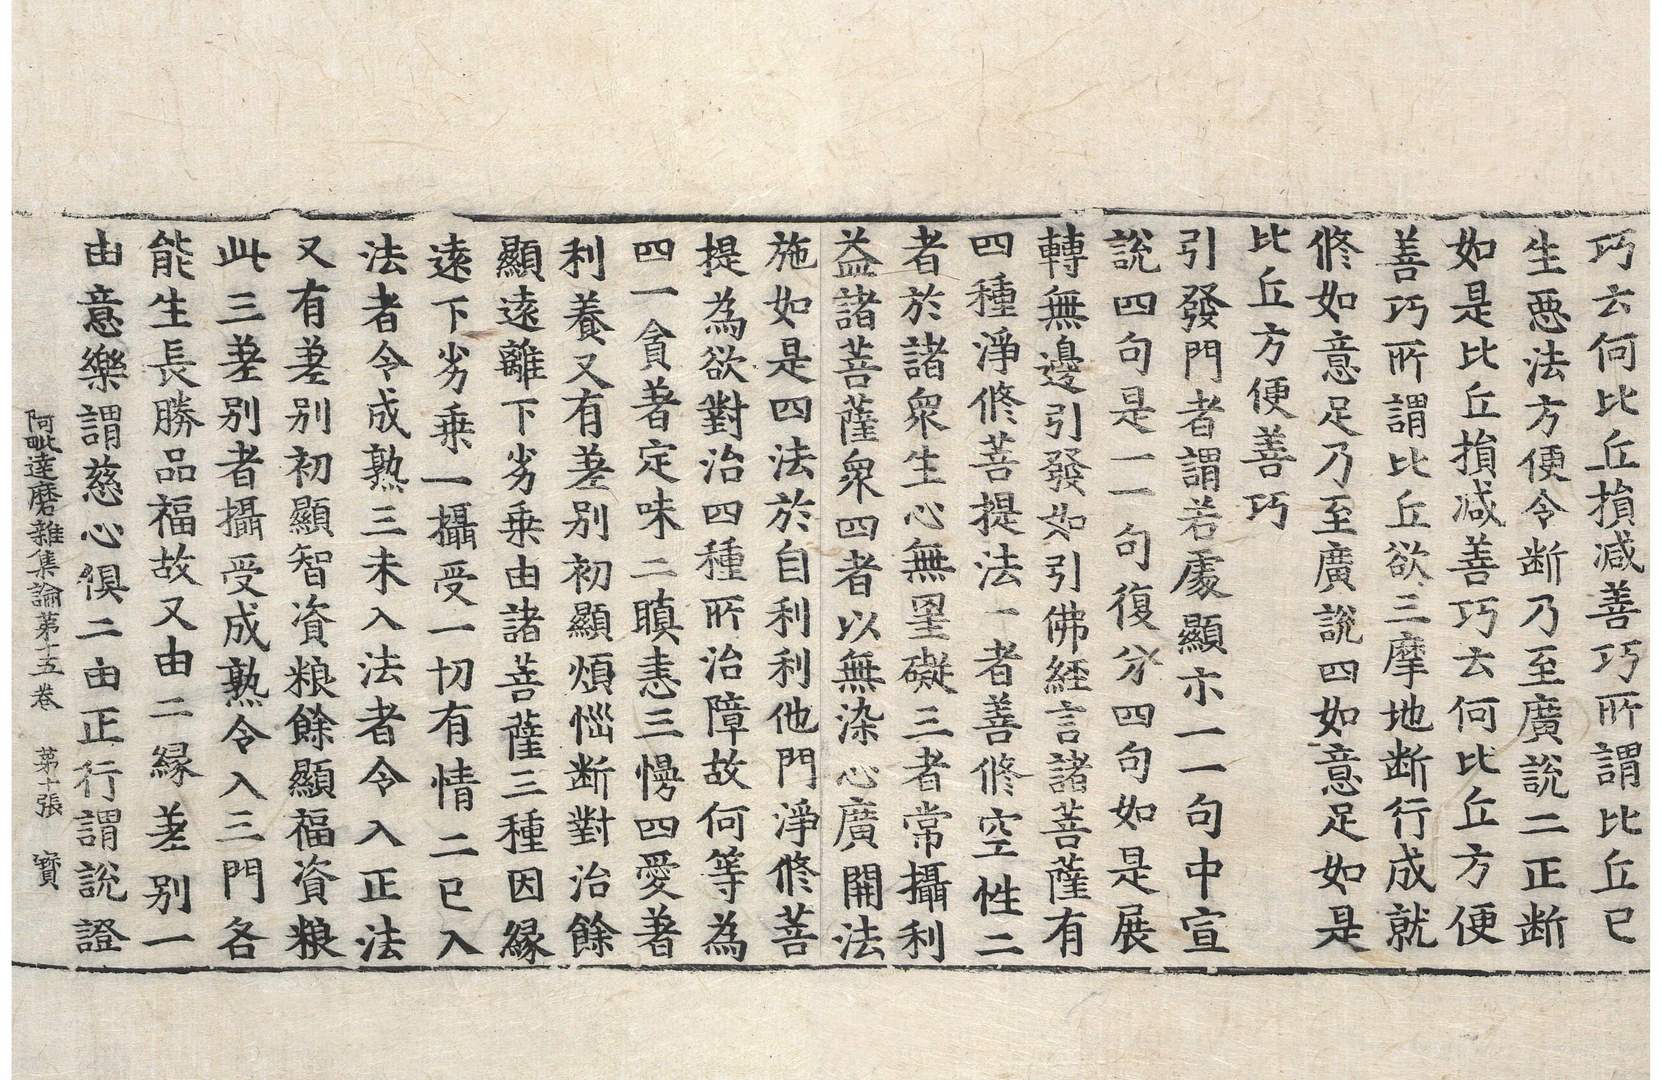 巧云何比丘損減善巧所謂比丘已
生惡法方便令断乃至廣說二正断
如是比丘損減善巧云何比丘方便
善巧所謂比丘欲三摩地断行成就
修如意足乃至廣說四如意足如是
比丘方便善巧
引發門者謂若處顯示一一句中宣
說四句是一一句復分四句如是展
轉無邊引發如引佛經言諸菩薩有
四種淨修菩提法一者善修空性二
者於諸衆生心無罣礙三者常攝利
益諸菩薩衆四者以無染心廣開法
施如是四法於自利利他門淨修菩
提為欲對治四種所治障故何等為
四一貪著定味二瞋恚三慢四愛著
利養又有差别初顯煩惱断對治餘
顯遠離下劣乗由諸菩薩三種因縁
遠下劣乗一攝受一切有情二已入
法者令成熟三未入法者令入正法
又有差别初顯智資粮餘顯福資粮
此三差别者攝受成熟令入三門各
能生長勝品福故又由二縁差别一
由意樂謂慈心俱二由正行謂說證
阿毗達磨雜集論第十五卷 第十張 寳